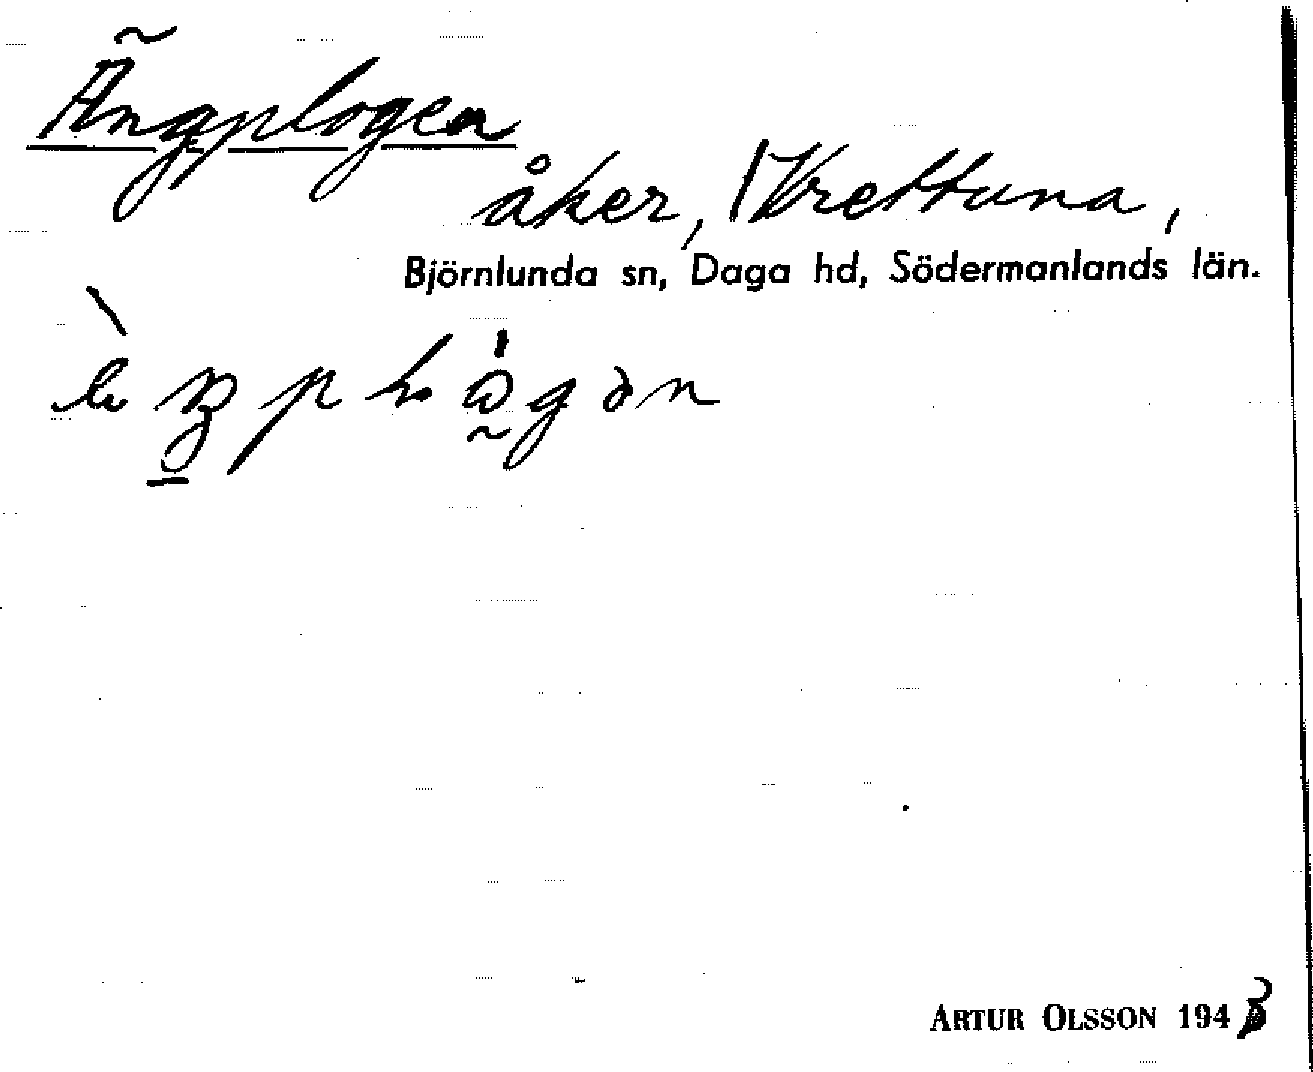 Ängplogen
åker, Vrettuna,
Björnlunda sn, Daga hd, Södermanlands län.
ARTUR OLSSON 1943